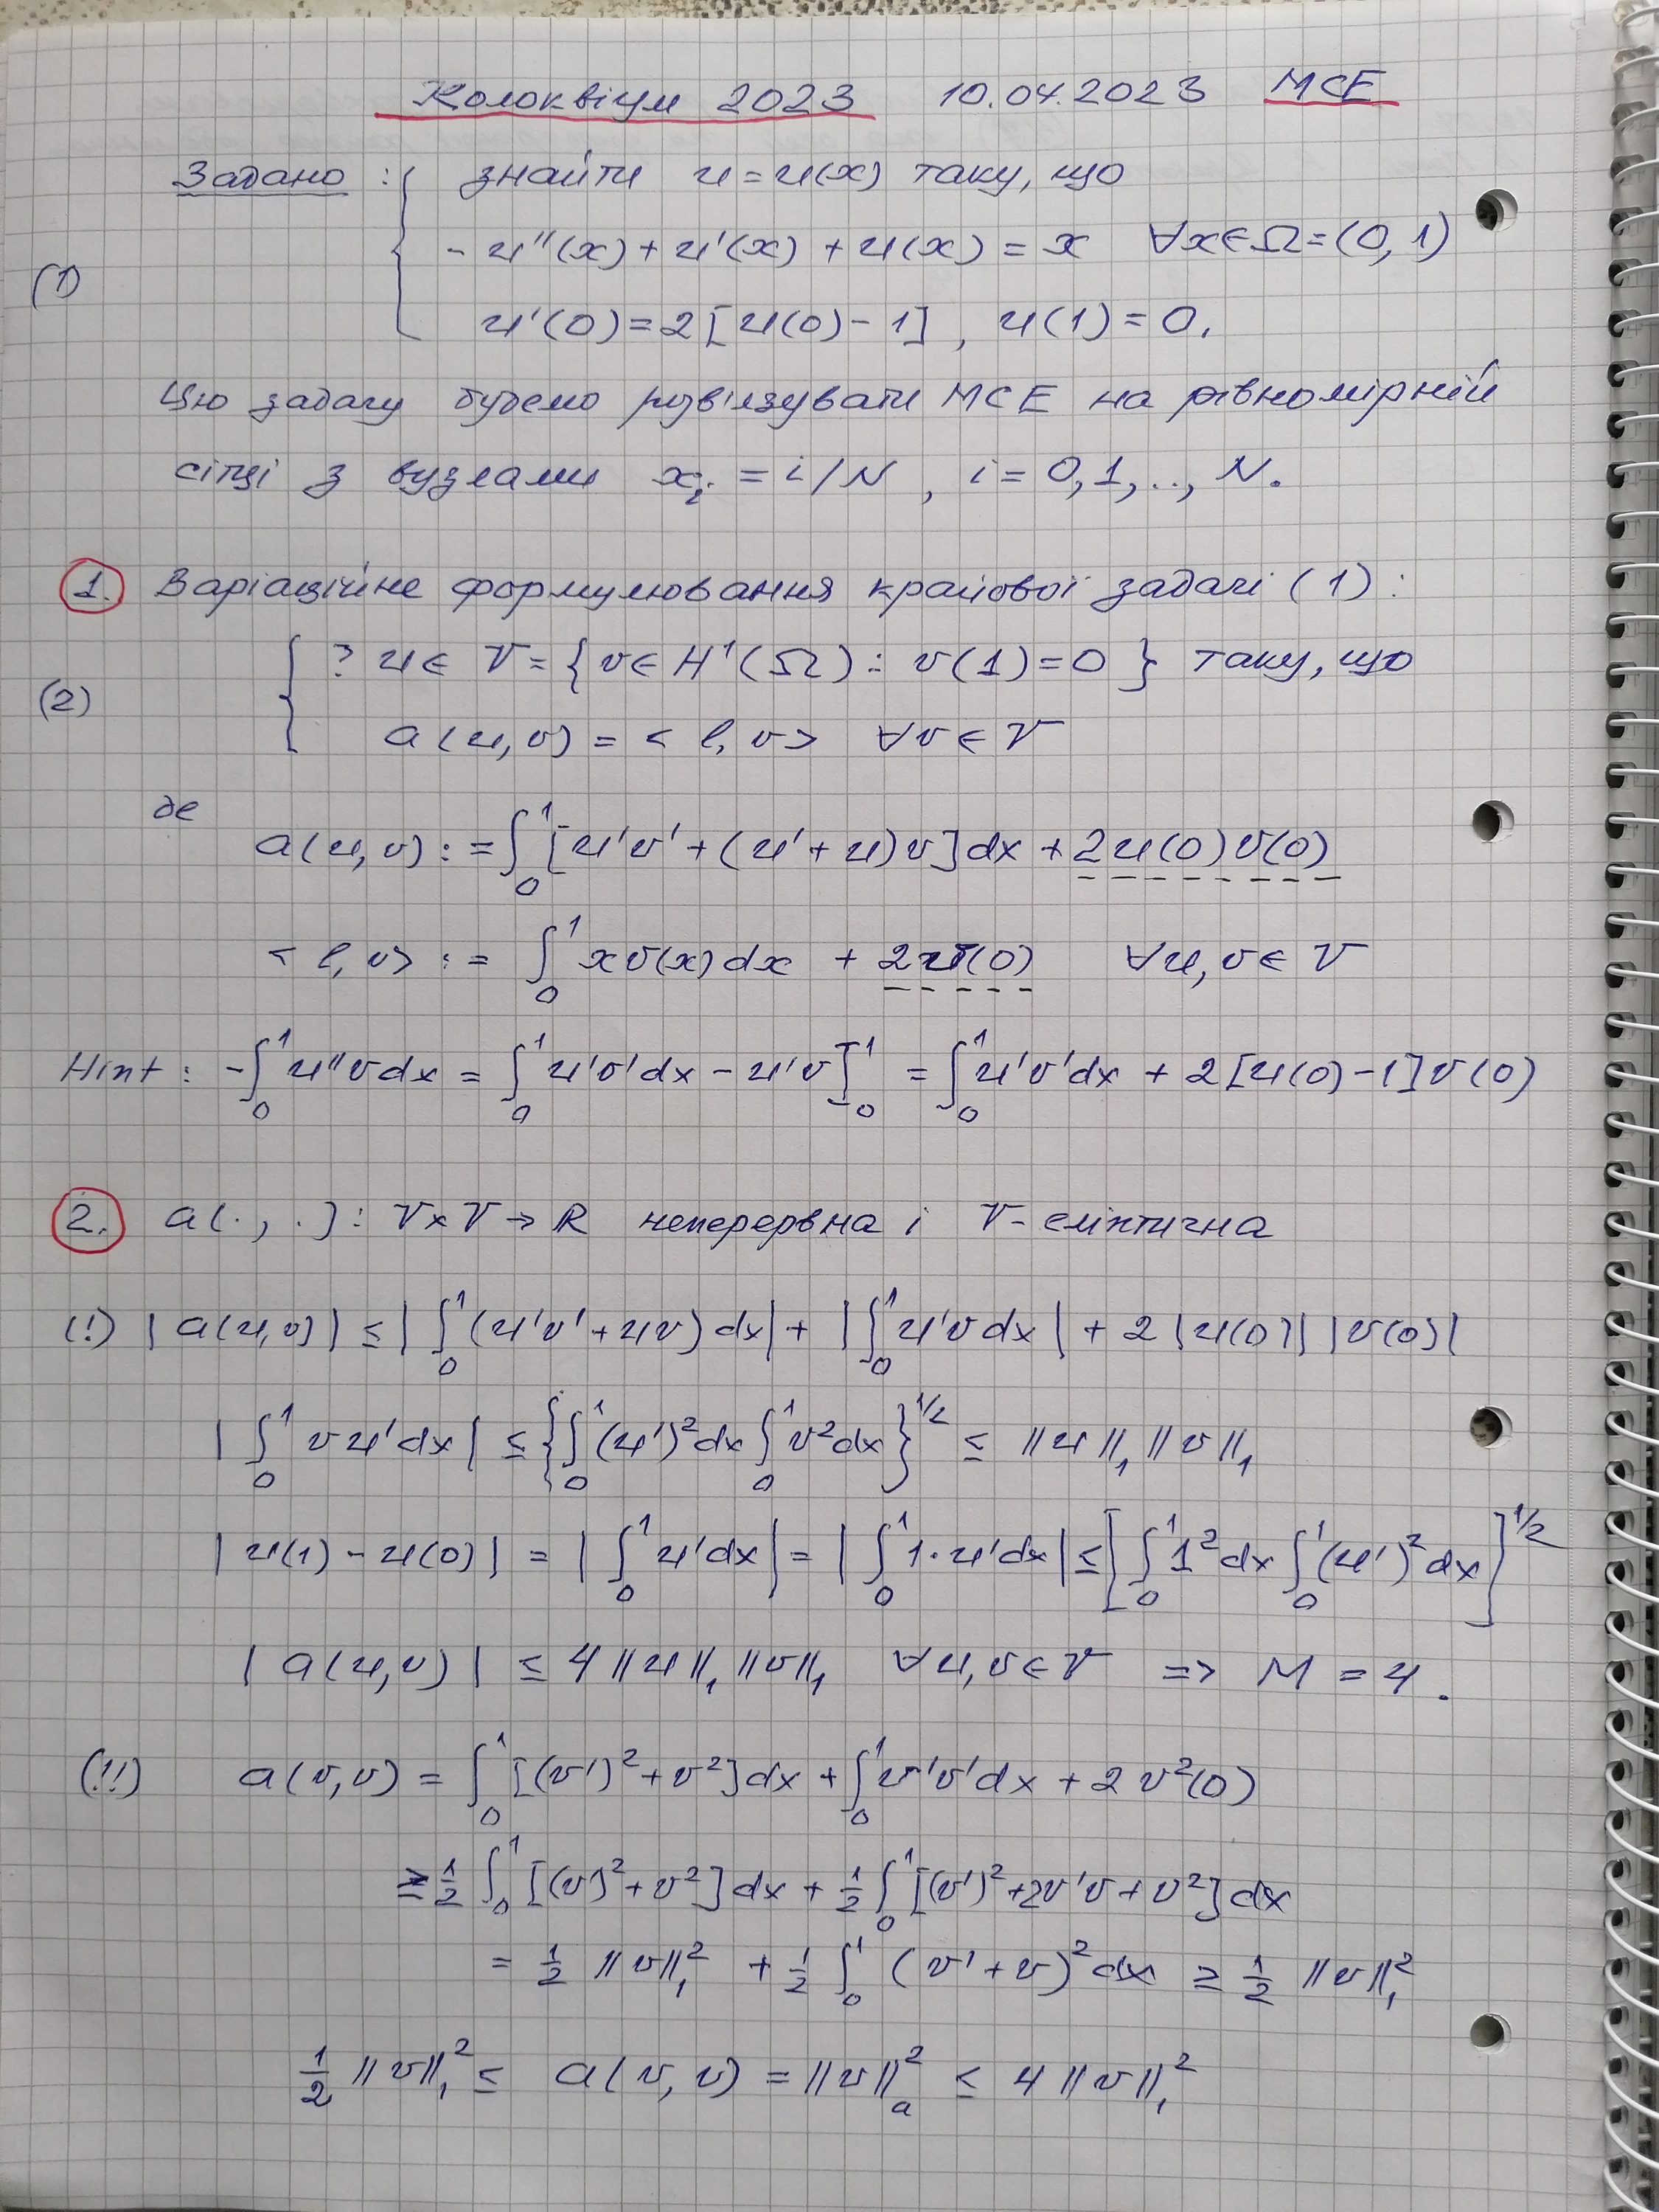 Колоквіум 2023 10.04.2023 МСЕ
Задано : { знайти u = u(x) таку, що
(1) - u''(x) + u'(x) + u(x) = x ∀x∈Ω=(0,1)
u'(0) = 2[u(0) - 1], u(1) = 0.
Цю задачу будемо розв'язувати МСЕ на рівномірній
сітці з вузлами x_i = i/N, i = 0,1,..,N.
1. Варіаційне формулювання крайової задачі (1):
(2) { ? u ∈ V = {v ∈ H^1(Ω) : v(1) = 0} таку, що
a(u,v) = <l,v> ∀v ∈ V
де
a(u,v) := ∫_0^1 [u'v' + (u' + u)v]dx + 2u(0)v(0)
<l,v> := ∫_0^1 xv(x)dx + 2v(0) ∀u,v ∈ V
Hint : -∫_0^1 u''v dx = ∫_0^1 u'v'dx - u'v]_0^1 = ∫_0^1 u'v'dx + 2[u(0) - 1]v(0)
2. a(·,·) : V×V → R неперервна і V-еліптична
(!) |a(u,v)| ≤ |∫_0^1 (u'v' + uv)dx| + |∫_0^1 u'v dx| + 2|u(0)||v(0)|
|∫_0^1 vu'dx| ≤ {∫_0^1 (u')^2dx ∫_0^1 v^2dx}^{1/2} ≤ ||u||_1 ||v||_1
|u(1) - u(0)| = |∫_0^1 u'dx| = |∫_0^1 1·u'dx| ≤ [∫_0^1 1^2dx ∫_0^1 (u')^2 dx]^{1/2}
|a(u,v)| ≤ 4||u||_1 ||v||_1 ∀u,v ∈ V => M = 4.
(!!) a(v,v) = ∫_0^1 [(v')^2 + v^2]dx + ∫_0^1 v'v'dx + 2v^2(0)
≥ 1/2 ∫_0^1 [(v')^2 + v^2]dx + 1/2 ∫_0^1 [(v')^2 + 2v'v + v^2]dx
= 1/2 ||v||_1^2 + 1/2 ∫_0^1 (v' + v)^2dx ≥ 1/2 ||v||_1^2
1/2 ||v||_1^2 ≤ a(v,v) = ||v||_a^2 ≤ 4||v||_1^2